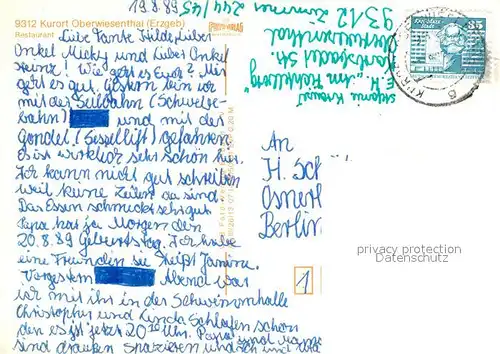 19.8.89
9312 Kurort Oberwiesenthal (Erzgeb)
Restaurant
Liebe Tante Hilde, Lieber
Onkel Micky und Lieber Onkel
Heinz! Wie geht es Euch? Mir
geht es gut. Gestern bin ich
mit der Seilbahn (Schwebe-
bahn) und mit der
Gondel (Sessellift) gefahren.
Es ist wirklich sehr schön hier.
Ich kann nicht gut schreiben
weil keine Zeilen da sind
Das Essen schmeckt sehr gut
Papa hat ja Morgen den
20.8.89 Geburtstag. Ich habe
eine Freundin sie heißt Janine.
Vorgestern Abend war
ich mit ihr in der Schwimmhalle
Christopher und Linda schlafen schon
den es ist jetzt 20 Uhr. Papa
sind draußen spazieren und ich
Zimmer 244/45
9312
Oberwiesenthal
Karlsbader Str.
E. H. "Am Fichtelberg"
35
An
H. Sch
Osnerth
Berlin
privacy protection
Datenschutz
1